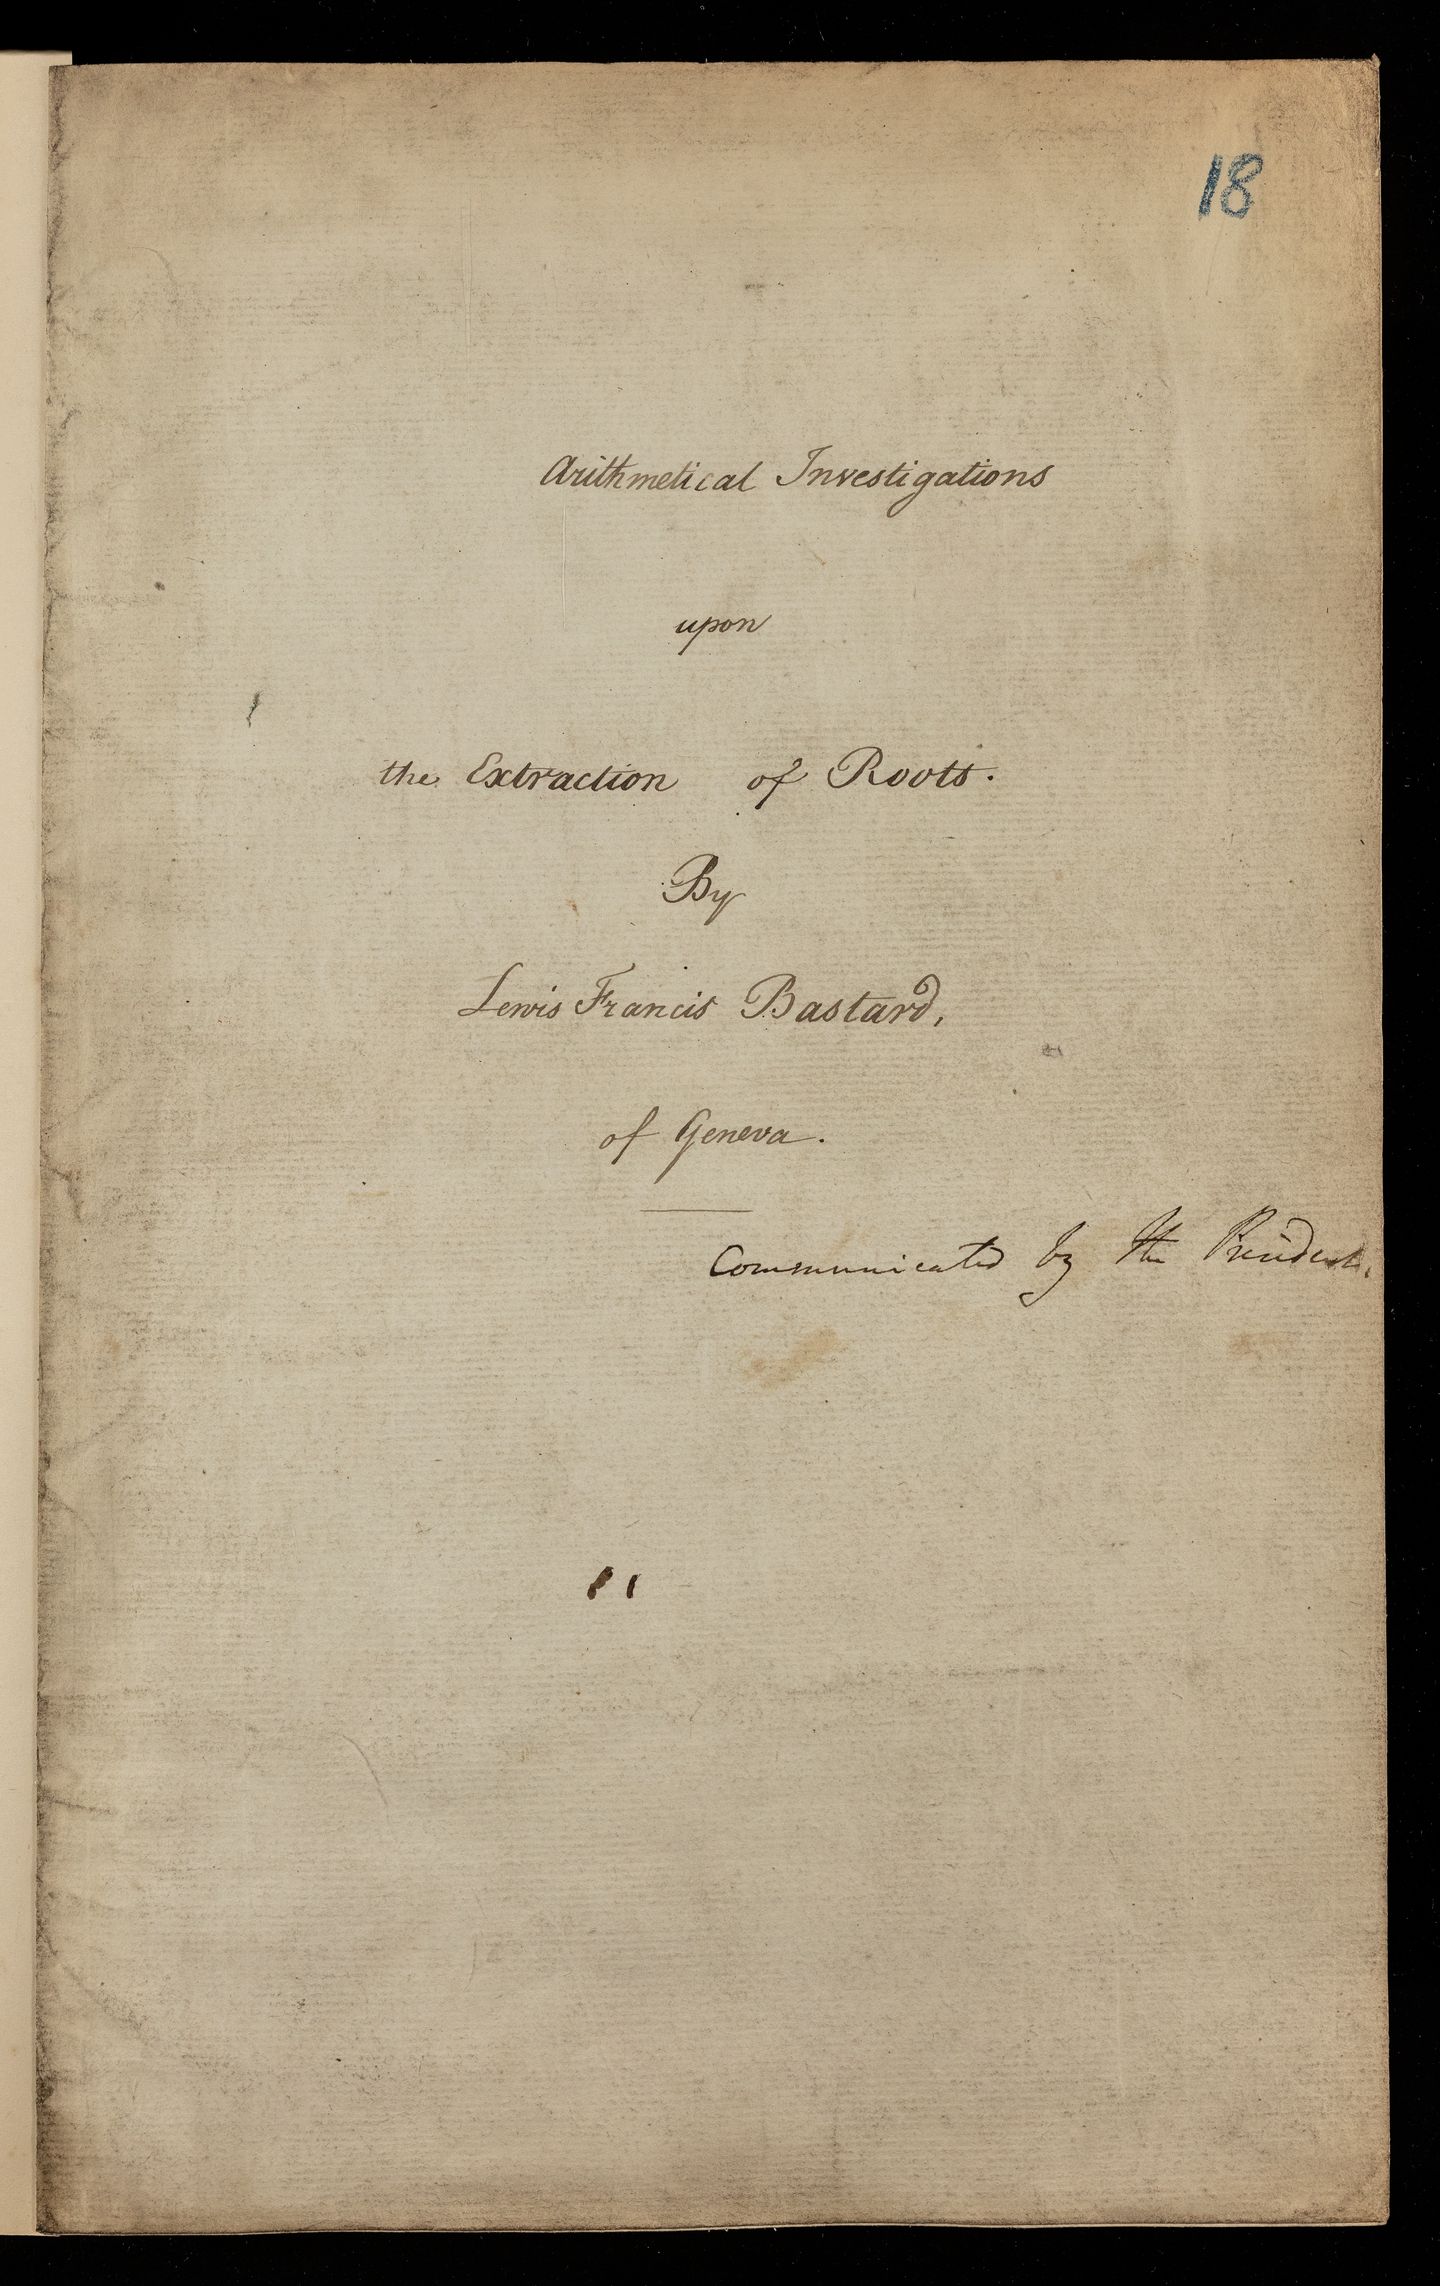 18
Arithmetical Investigations
upon
the Extraction of Roots.
By
Lewis Francis Bastard,
of Geneva.
Communicated by the President.